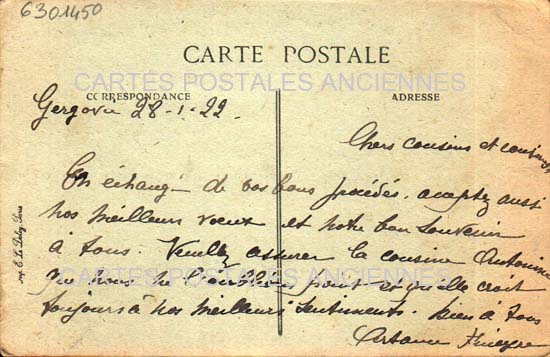 6301450
CARTE POSTALE
CARTES POSTALES ANCIENNES
CORRESPONDANCE
ADRESSE
Gergovie 28-1-22.
Chers cousins et cousines
En échange de vos bons procédés, acceptez aussi
nos meilleurs voeux et notre bon souvenir
à tous. Veuillez assurer la cousine Antonine
que nous ne l'oublions point et qu'elle croit
toujours à nos meilleurs sentiments. Bien à tous
Imp. E. Le Deley, Paris